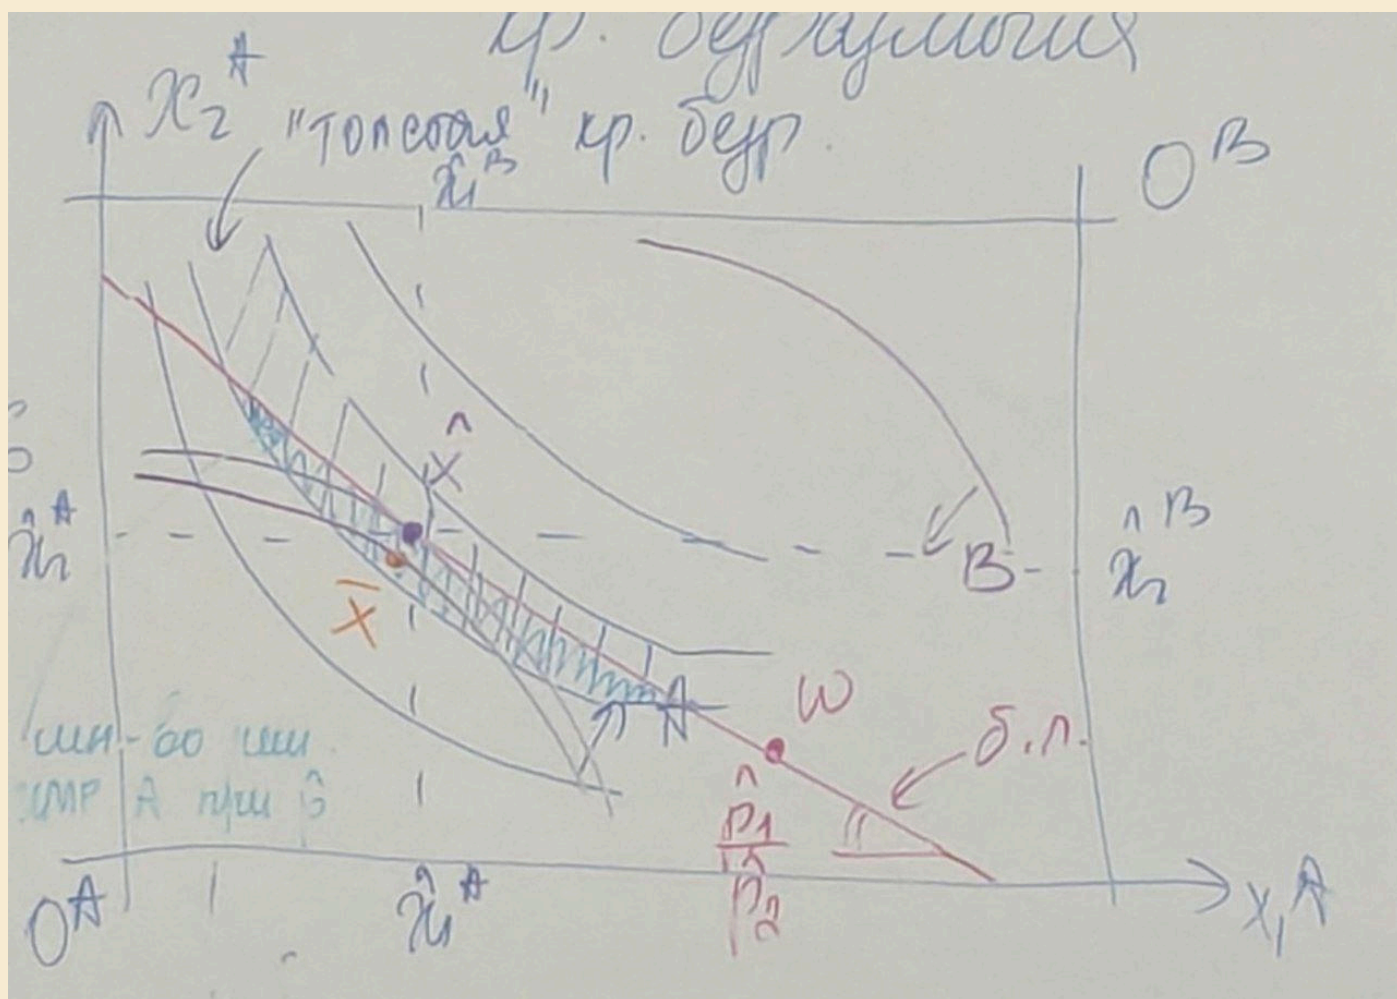 кр. безразличия
x₂ᴬ "толстая" кр. безр.
x̂₁ᴮ
Oᴮ
x̂
x̂₂ᴬ
x̂₂ᴮ
B
x̄
A
ω
б.л.
мн-во
A при p̂
p̂₁
p̂₂
Oᴬ
x̂₁ᴬ
x₁ᴬ